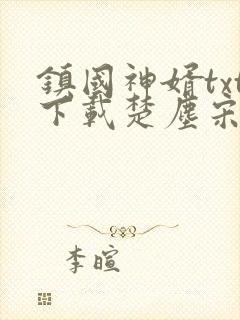 鎮國神婿txt
下載楚塵宋
李暄